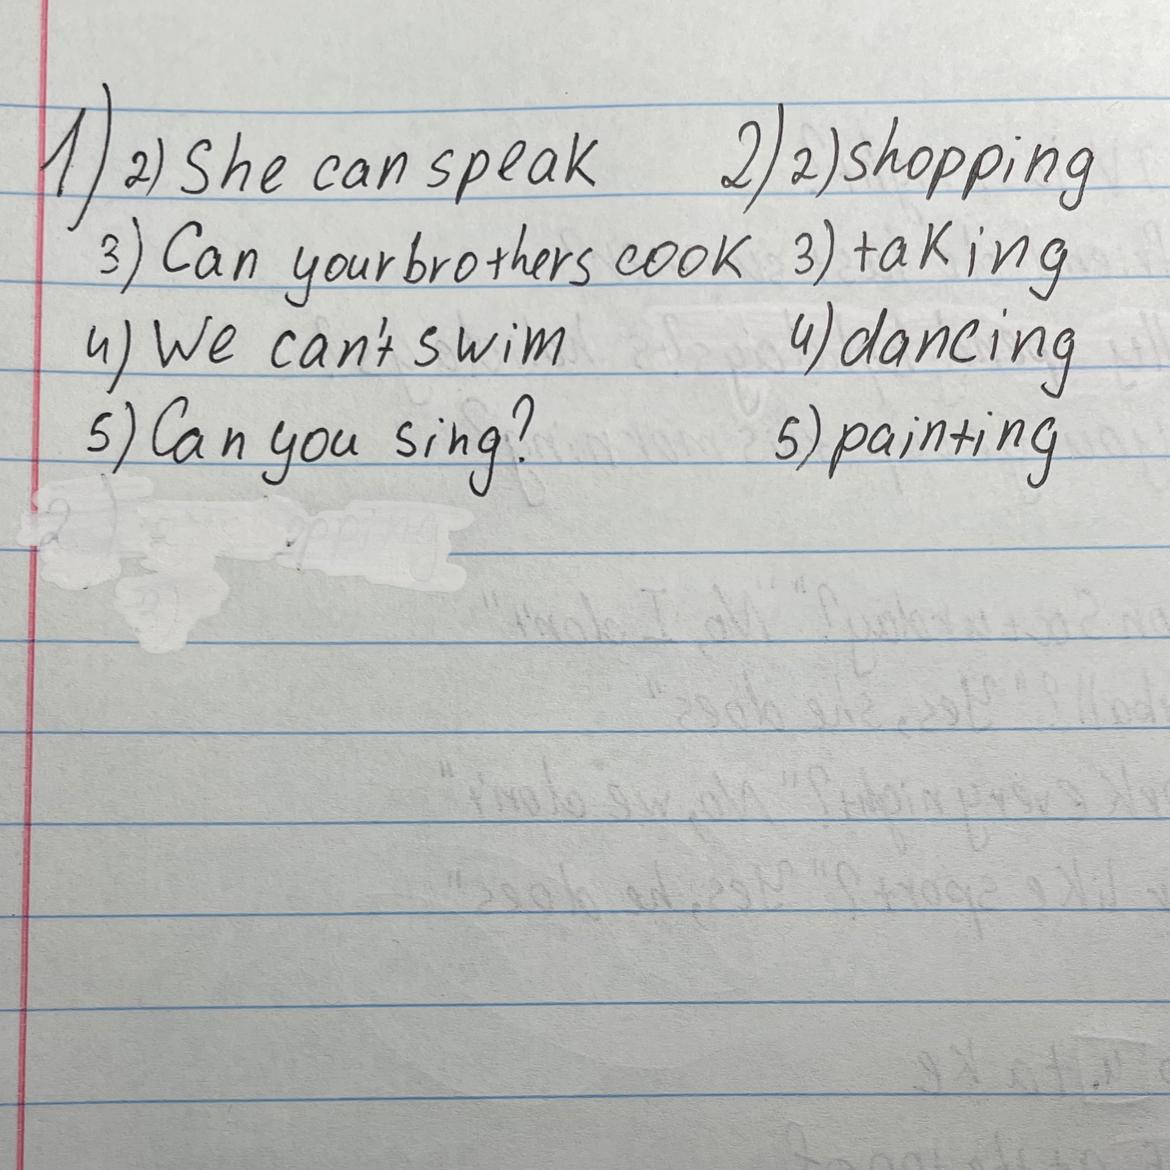 1) 2) She can speak
3) Can your brothers cook
4) We can't swim
5) Can you sing?
2) 2) shopping
3) taking
4) dancing
5) painting